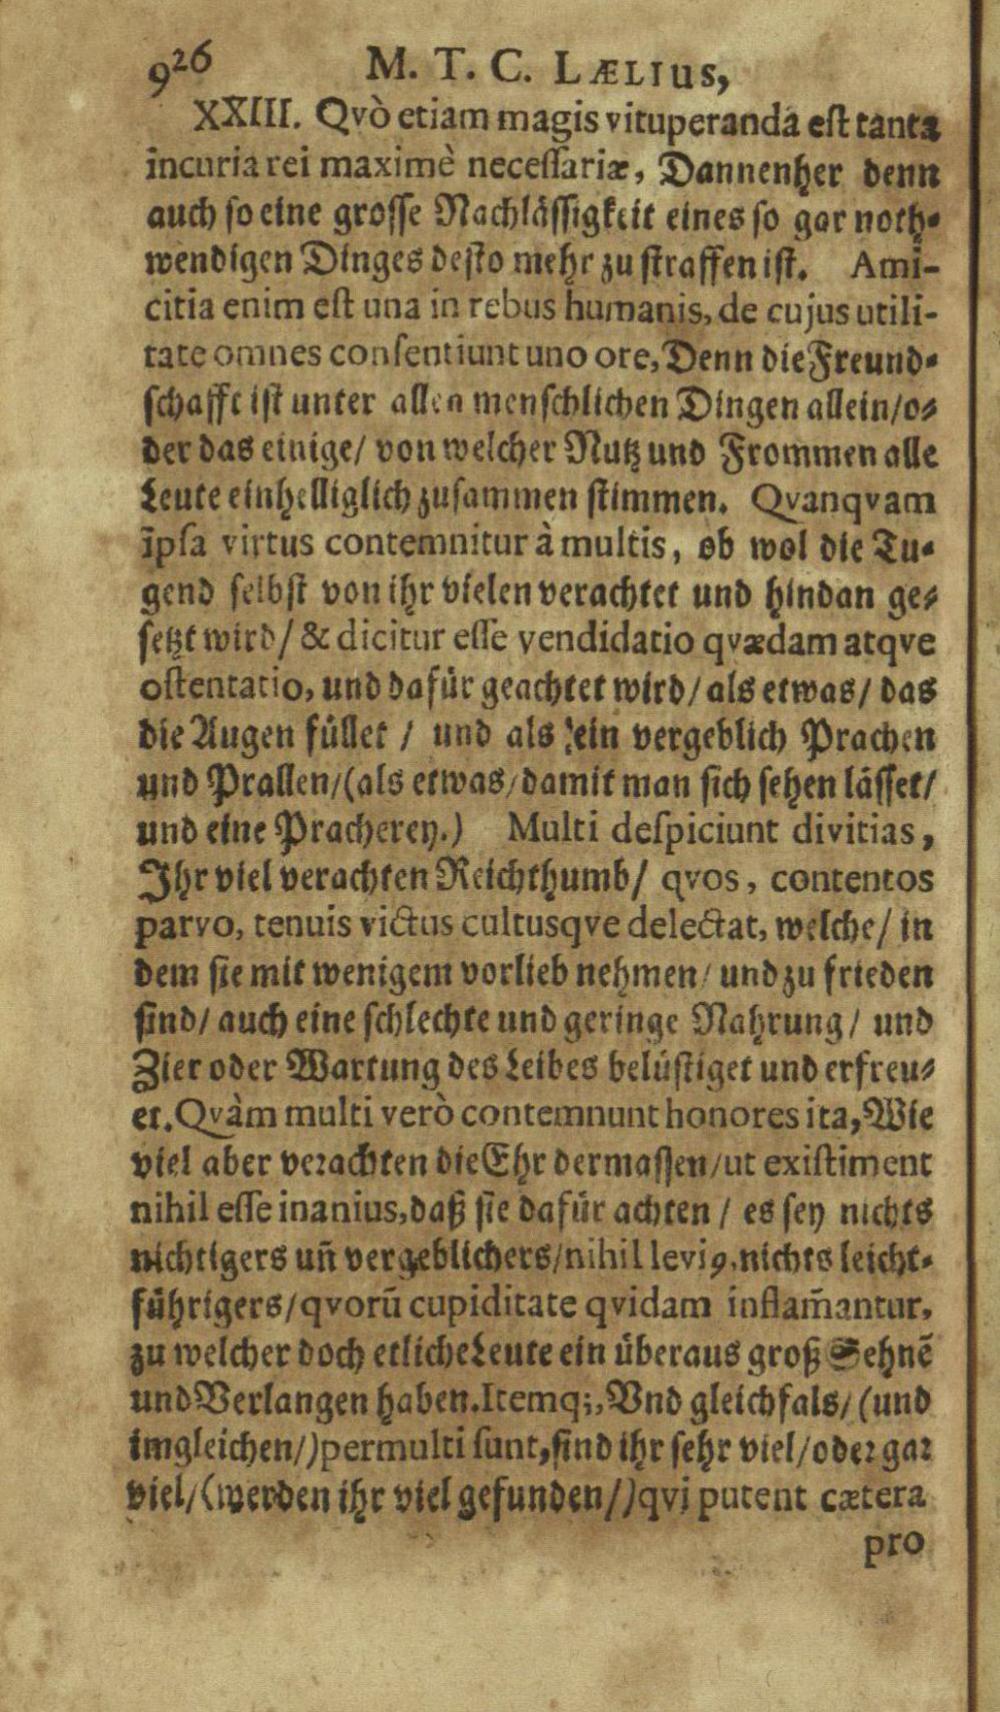 926 M. T. C. LÆLIUS,
XXIII. Qvò etiam magis vituperanda est tanta
incuria rei maximè necessariæ, Dannenher denn
auch so eine grosse Nachlässigkeit eines so gar noth-
wendigen Dinges desto mehr zu straffen ist. Ami-
citia enim est una in rebus humanis, de cujus utili-
tate omnes consentiunt uno ore, Denn die Freund-
schafft ist unter allen menschlichen Dingen allein/o-
der das einige/ von welcher Nutz und Frommen alle
Leute einhelliglich zusammen stimmen. Qvanqvam
ipsa virtus contemnitur à multis, ob wol die Tu-
gend selbst von ihr vielen verachtet und hindan ge-
setzt wird/ & dicitur esse vendidatio qvædam atqve
ostentatio, und dafür geachtet wird/ als etwas/ das
die Augen füllet / und als ein vergeblich Prachen
und Prallen/(als etwas/damit man sich sehen lässet/
und eine Pracherey.) Multi despiciunt divitias,
Ihr viel verachten Reichthumb/ qvos, contentos
parvo, tenuis victus cultusqve delectat, welche/ in
dem sie mit wenigem vorlieb nehmen/ und zu frieden
sind/ auch eine schlechte und geringe Nahrung/ und
Zier oder Wartung des Leibes belüstiget und erfreu-
et. Qvàm multi verò contemnunt honores ita, Wie
viel aber verachten die Ehr dermassen/ut existiment
nihil esse inanius, daß sie dafür achten / es sey nichts
nichtigers uñ vergeblichers/nihil leviꝯ, nichts leicht-
führigers/qvorũ cupiditate qvidam inflam̃antur,
zu welcher doch etliche Leute ein überaus groß Sehnẽ
und Verlangen haben. Itemq;, Vnd gleichfals/(und
imgleichen/)permulti sunt, sind ihr sehr viel/oder gar
viel/(werden ihr viel gefunden/)qvi putent cætera
pro